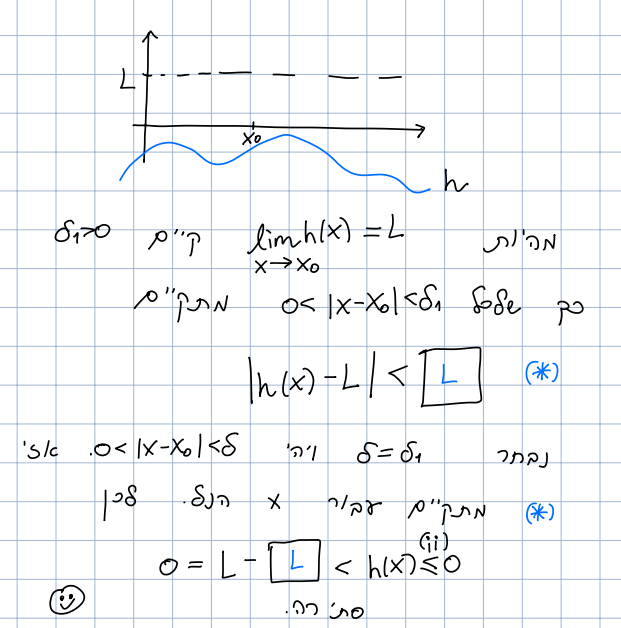 L
x₀
h
מהיות lim h(x) = L קיים δ₁>0
x→x₀
כך שלכל 0< |x-x₀|<δ₁ מתקיים
|h(x) - L| < L (*)
נבחר δ=δ₁ ויהי 0< |x-x₀|<δ. אזי
(*) מתקיים עבור x הנ"ל. לכן
(ii)
0 = L - L < h(x) ≤ 0
סתירה.